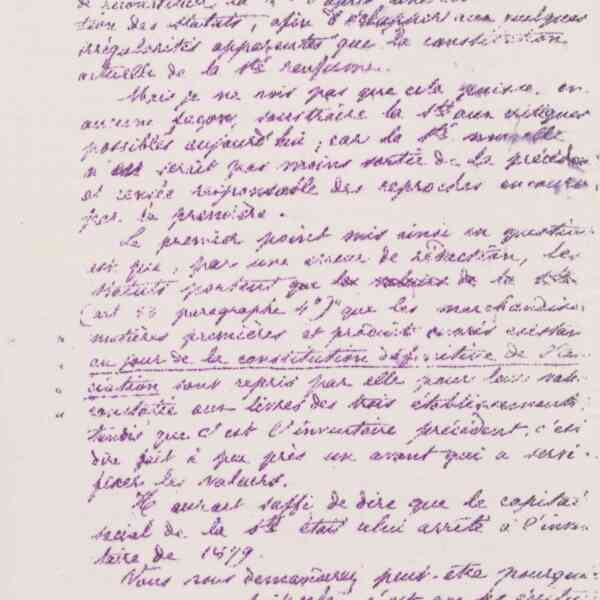 de reconstituer la
tion des statuts, afin d'échapper aux quelques
irrégularités apparentes que la constitution
actuelle de la Sté renferme.
Mais je ne vois pas que cela puisse en
aucune façon soustraire la Sté aux critiques
possibles aujourd'hui; car la Sté nouvelle
n'en serait pas moins sortie de la précéden
et censée responsable des reproches encourus
par la première.
Le premier point mis ainsi en question
est que, par une erreur de rédaction, les
statuts portent que les valeurs de la Sté
(art 53 paragraphe 4°) "que les marchandises
" matières premières et produits ouvrés existan
" au jour de la constitution définitive de l'as
" ciation sont repris par elle pour leur vale
" constatée aux livres des trois établissements,
tandis que c'est l'inventaire précédent, c'est
dire fait à peu près un an avant qui a servi
fixer les valeurs.
Il aurait suffi de dire que le capital
social de la Sté était celui arrêté à l'inven
taire de 1879.
Vous nous demanderez peut-être pourquoi
c'est que